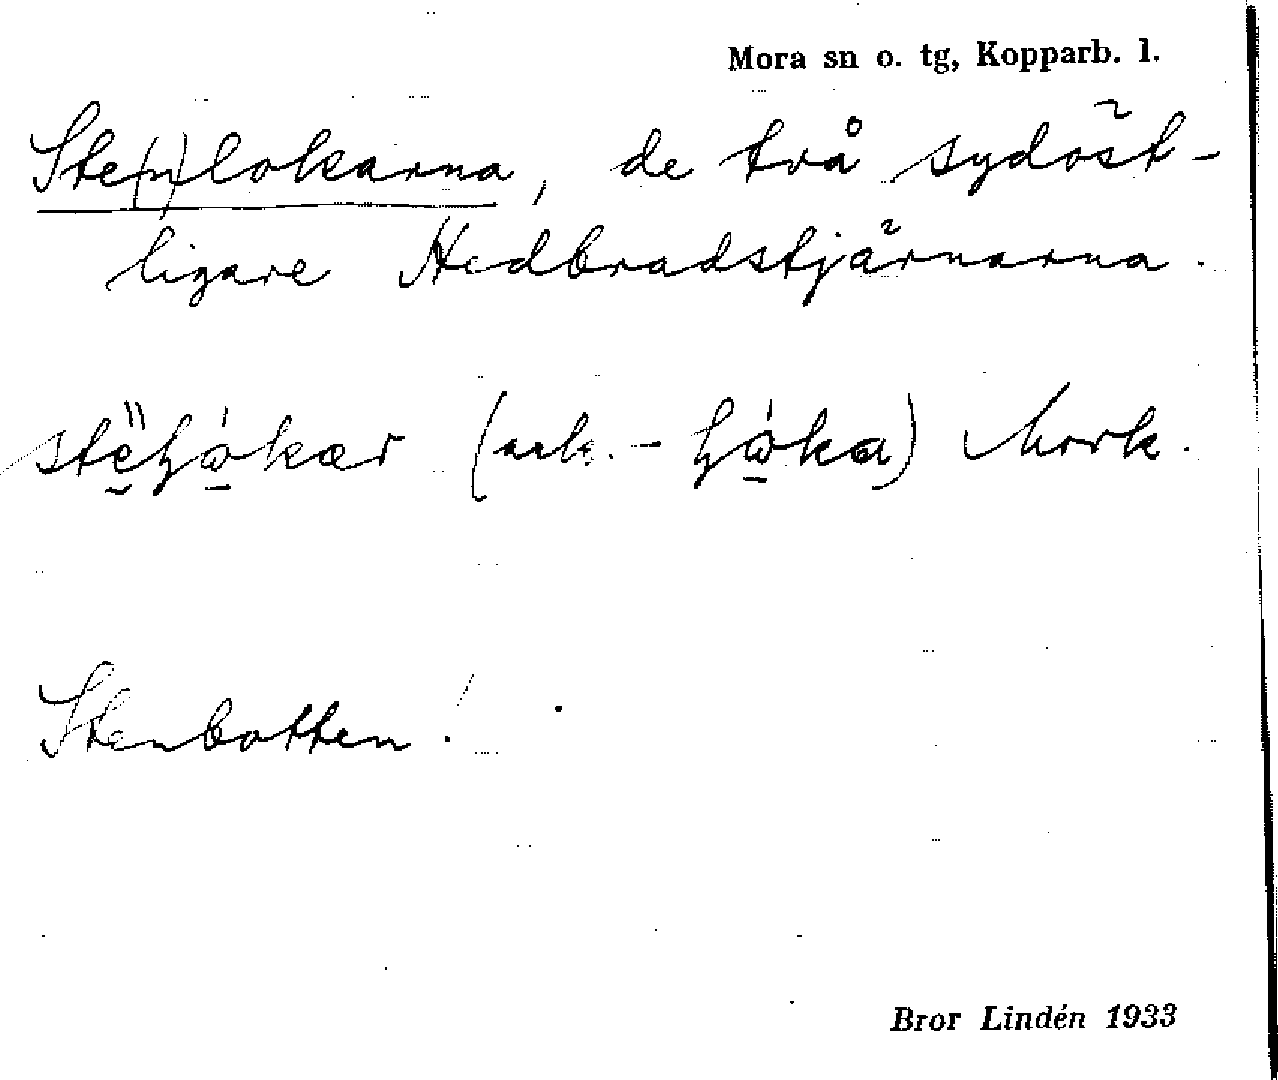 Mora sn o. tg, Kopparb. l.
Ste(n)lokarna, de två sydöst-
ligare Hedbradstjärnarna.
(ack. -
Stenbotten!
Bror Lindén 1933